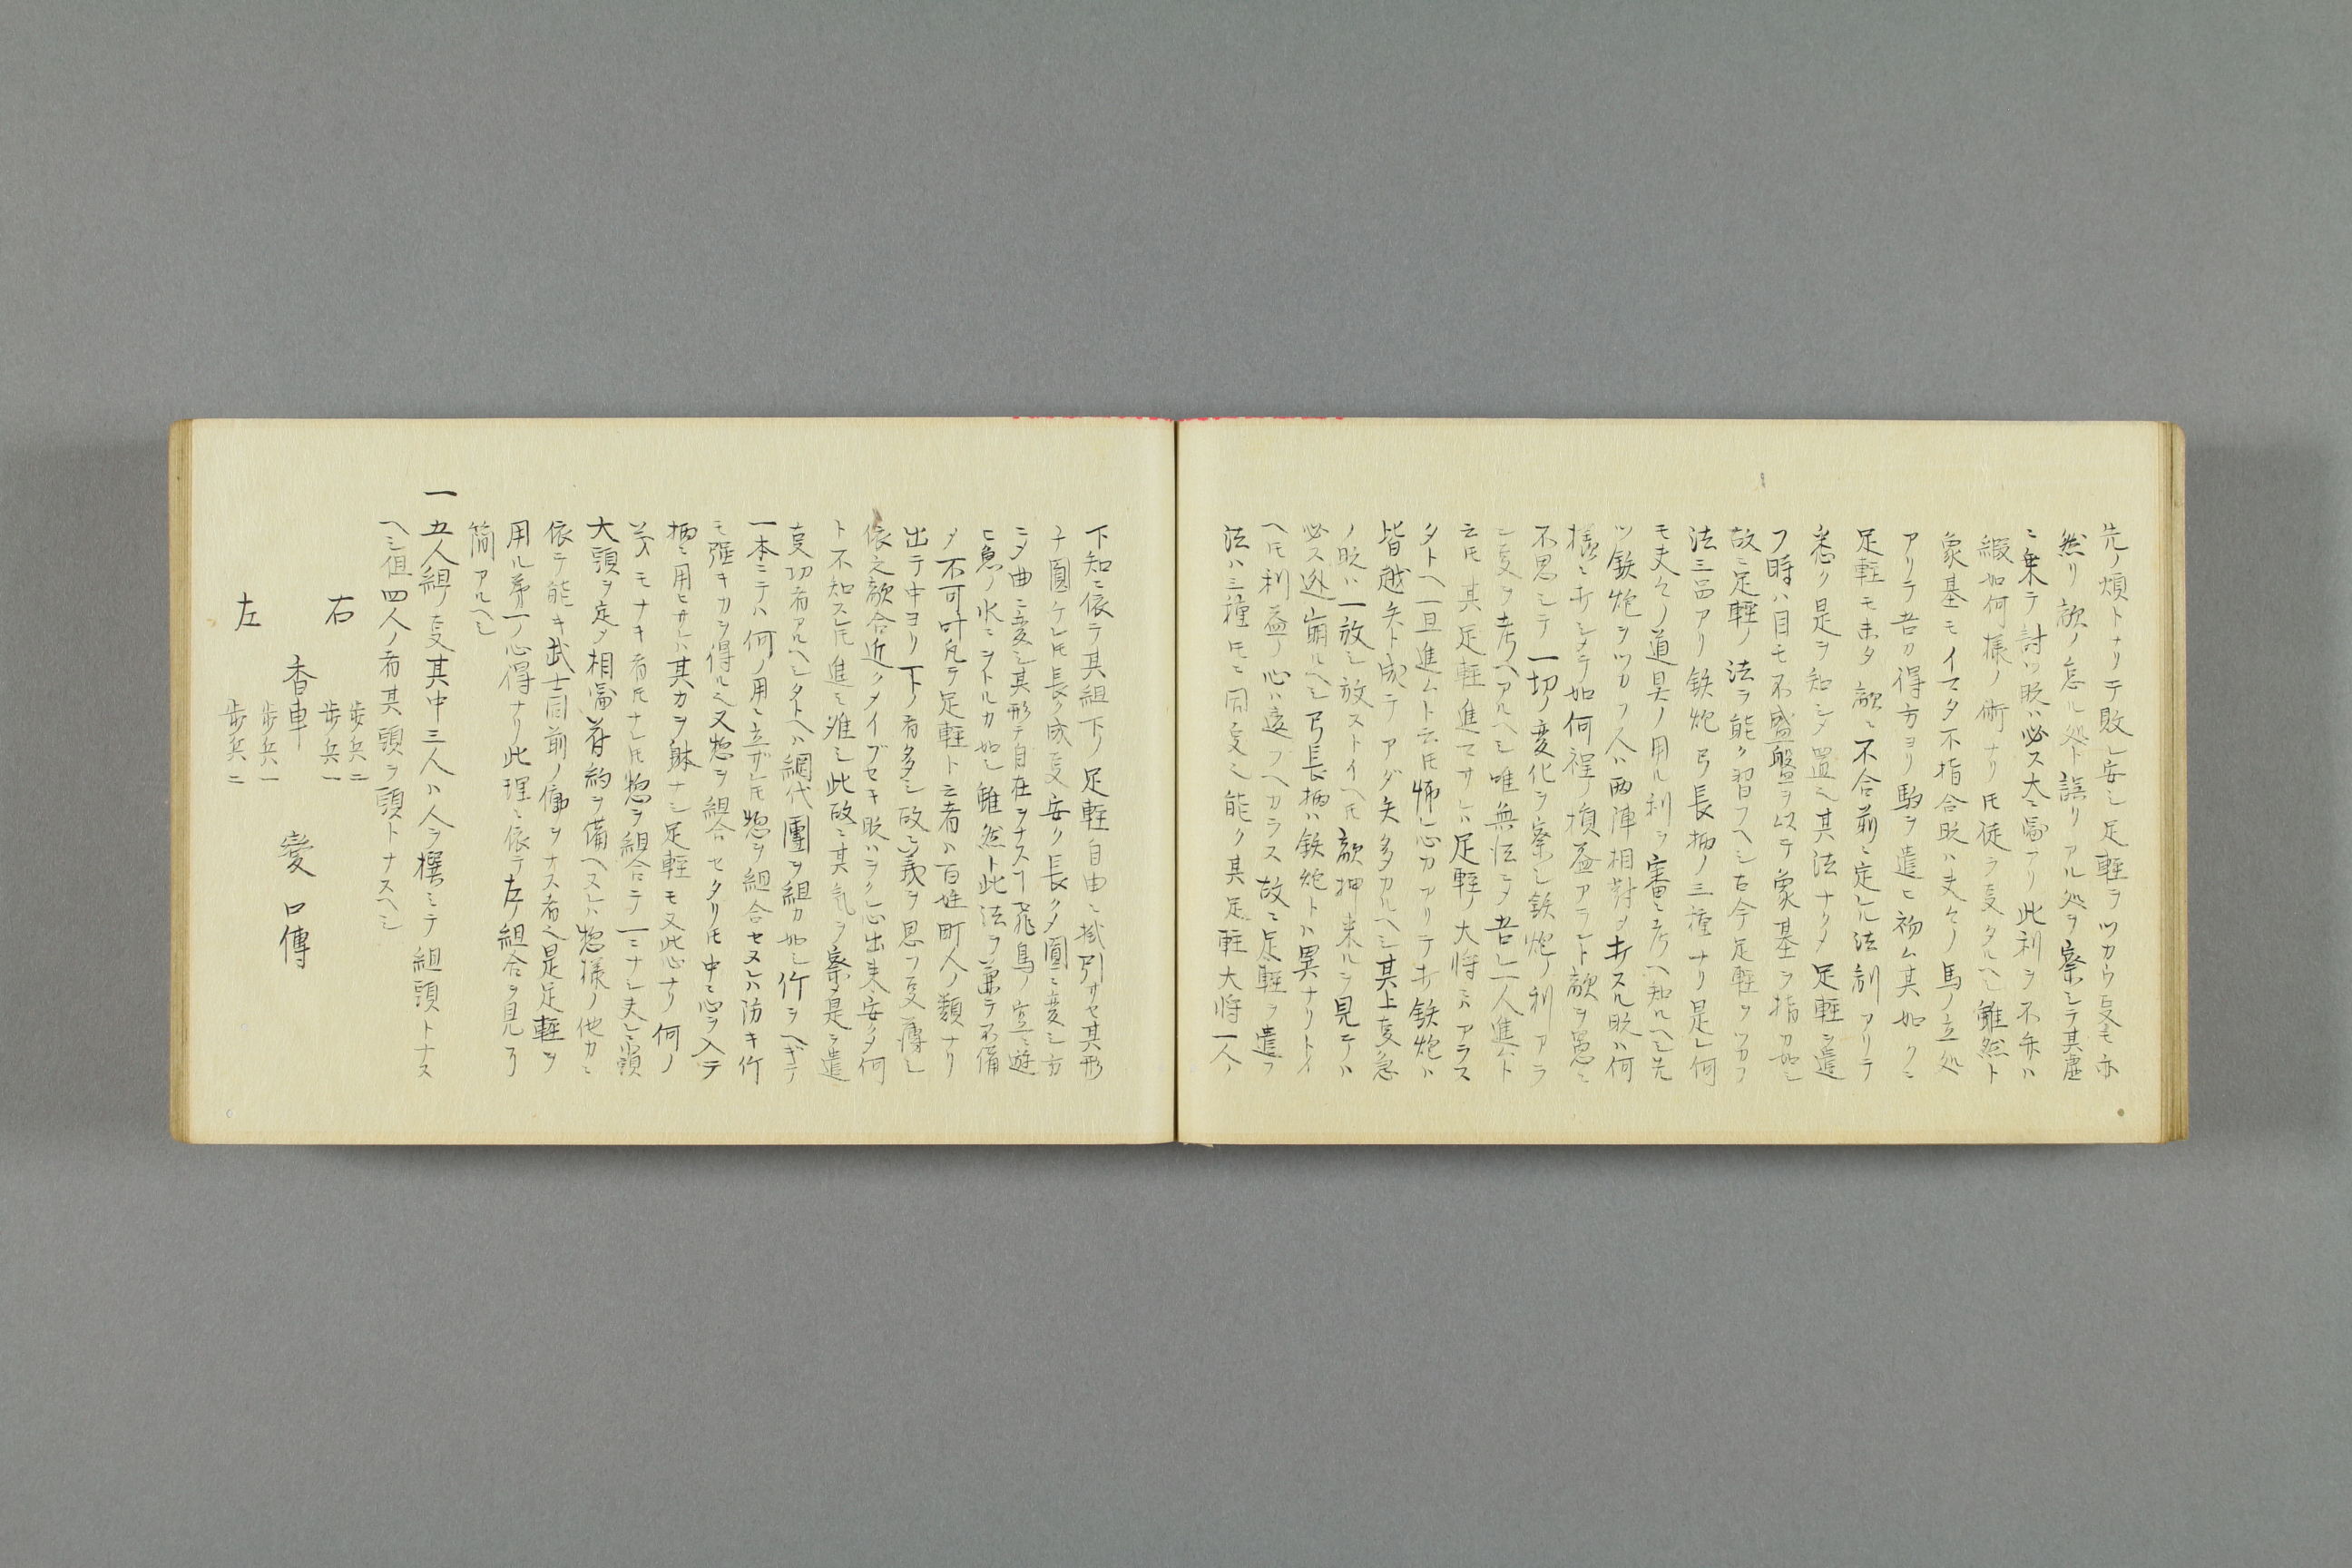 先ノ煩トナリテ敗レ安シ足軽ヲツカウ亊モ亦
然リ敵ノ怠ル処ト誤リアル処ヲ察シテ其虚
ニ乗テ討ツ時ハ必ス大ニ勝アリ此利ヲ不弁ハ
縦如何様ノ術ナリ𪜈徒ラ亊タルヘシ雖然ト
象基モイマタ不指合時ハ夫々ノ馬ノ立処
アリテ吾カ得方ヨリ駒ヲ遣ヒ初ム其如クニ
足軽モ未タ敵ニ不合前ニ定レル法制アリテ
悉ク是ヲ知シメ置ヘシ其法ナクメ足軽ヲ遣
フ時ハ目モ不盛盤ヲ以テ象基ヲ指カ如シ
故ニ足軽ノ法ヲ能ク習フヘシ古今足軽ヲツカフ
法三品アリ鉄炮弓長柄ノ三種ナリ是レ何
モ夫々ノ道具ノ用ル利ヲ審ニ考ヘ知ルヘシ先
ツ鉄炮ヲツカフ人ハ両陣相対メ打スル時ハ何
様ニ打シメテ如何程ノ損益アラント敵ヲ愚ニ
不思シテ一切ノ変化ヲ察シ鉄炮ノ利アラ
ン亊ヲ考ヘアルヘシ唯無法ニメ吾レ一人進ムト
云𪜈其足軽進マサレハ足軽ノ大将ニハアラス
タトヘ一旦進ムト云𪜈怖レ心カアリテ打鉄炮ハ
皆越矢ト成テアダ矢多カルヘシ其上亊急
ノ時ハ一放シ放ストイヘ𪜈敵押来ルヲ見テハ
必ス迯崩ルヘシ弓長柄ハ鉄炮トハ異ナリトイ
ヘ𪜈利益ノ心ハ違フヘカラス故ニ足軽ヲ遣フ
法ハ三種𪜈ニ同亊ニ能ク其足軽大将一人ノ
下知ニ依テ其組下ノ足軽自由ニ掛引サセ其形
チ圓ケレ𪜈長ク成亊安ク長クメ圓ニ変シ方
ニメ曲ニ変シ其形テ自在ヲナスヿ飛鳥ノ空ニ遊
ヒ魚ノ水ニヲトルカ如シ雖然ト此法ヲ兼テ不備
メ不可叶凡テ足軽ト云者ハ百姓町人ノ類ナリ
出テ中ヨリ下ノ者多シ故ニ義ヲ思フ亊薄シ
依之敵合近クメイブセキ時ハヲクレ心出来安クメ何
ト不知スレ𪜈進ミ難シ此故ニ其気ヲ察メ是ヲ遣
亊功者アルヘシタトヘハ網代團ヲ組カ如シ竹ヲヘギテ
一本ニテハ何ノ用ニ立ザレ𪜈惣ヲ組合セヌレハ防キ竹
モ強キカヲ得ル又惣ヲ組合セタリ𪜈中ニ心ヲ入テ
柄ニ用ヒサレハ其カヲ躰ナシ足軽モ又此心ナリ何ノ
芸モナキ者𪜈ナレ𪜈惣ヲ組合テ一ニナシ夫ニ頭
大頭ヲ定メ相図府約ヲ備ヘヌレハ惣様ノ他カニ
依テ能キ武士同前ノ働ヲナス者ヘ是足軽ヲ
用ル第一ノ心得ナリ此理ニ依テ左ノ組合ヲ見了
簡アルヘシ
一 五人組ノ亊其中三人ハ人ヲ撰ミテ組頭トナス
ヘシ但四人ノ者其頭ヲ頭トナスヘシ
右 歩兵二
歩兵一
香車 変 口傳
歩兵一
左 歩兵二